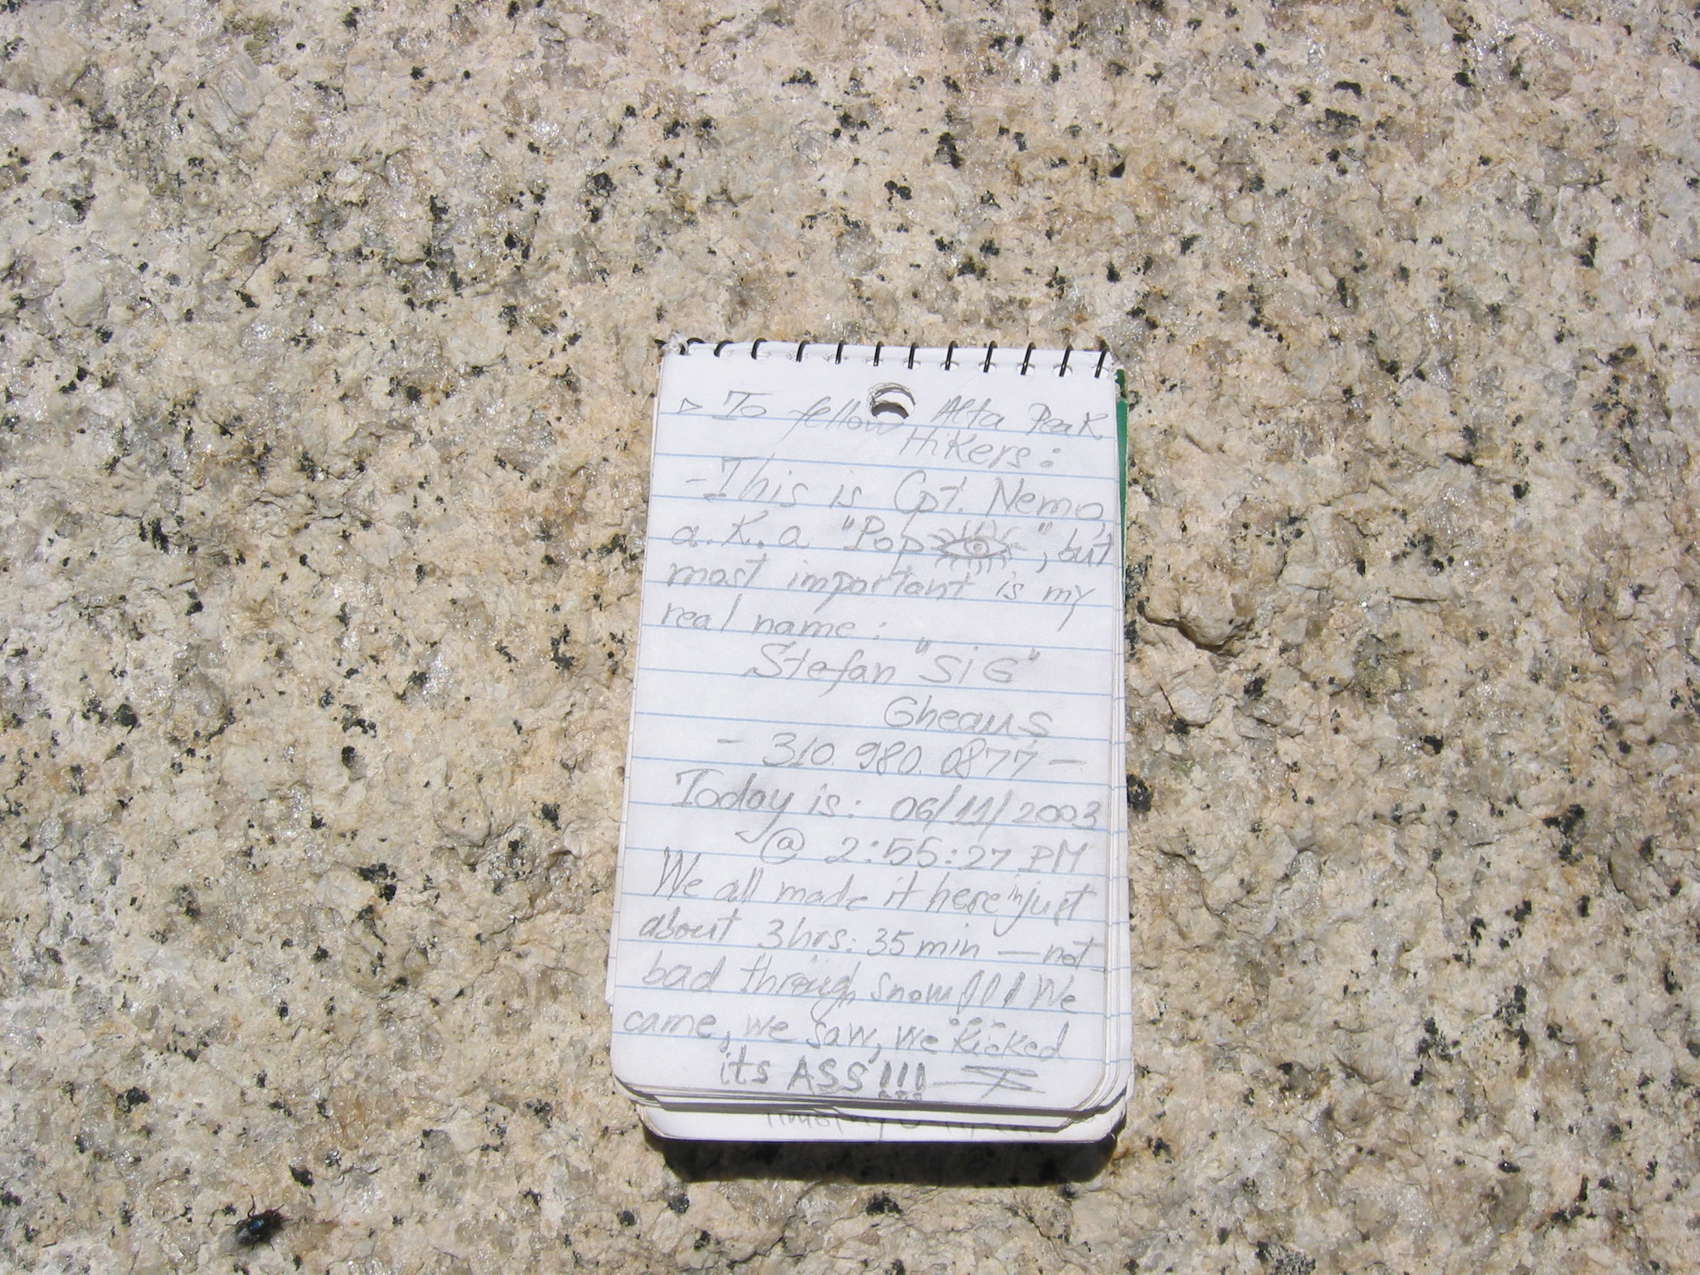 To fellow Alta Peak
Hikers:
-This is Cpt. Nemo,
a.K.a "Pop ", but
most important is my
real name:
Stefan "SiG"
Gheaus
- 310.980.0877 -
Today is: 06/11/2003
@ 2:55:27 PM
We all made it here in just
about 3hrs:35min — not
bad through snow!!! We
came, we saw, we kicked
its ASS!!!